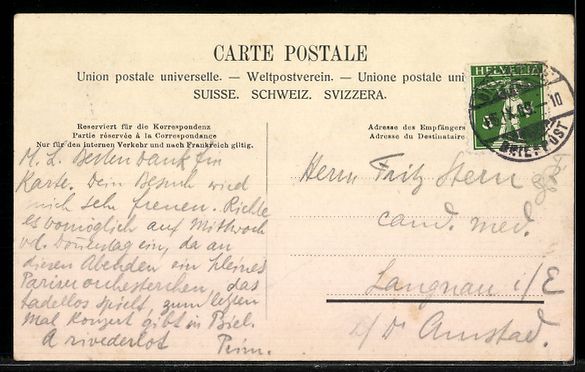 CARTE POSTALE
Union postale universelle. — Weltpostverein. — Unione postale uni
SUISSE. SCHWEIZ. SVIZZERA.
Reserviert für die Korrespondenz
Partie réservée à la Correspondance
Nur für den internen Verkehr und nach Frankreich giltig.
Adresse des Empfängers
Adresse du Destinataire
HELVETIA
BRIEFPOST
M. L. Besten Dank für
Karte. Dein Besuch wird
mich sehr freuen. Richte
es womöglich auf Mittwoch
od. Donnerstag ein, da an
diesen Abenden ein kleines
Pariserorchesterchen, das
tadellos spielt, zum letzten
Mal Konzert gibt in Biel.
A rivederlot
Herrn Fritz Stern
cand. med.
Langnau i/E
Dr Amstad.